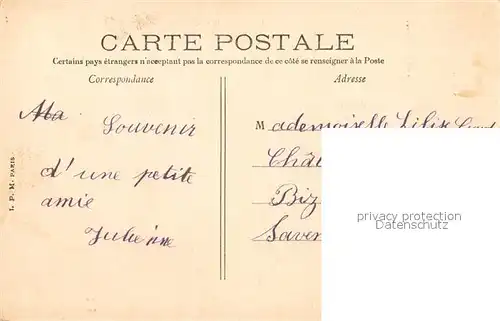 CARTE POSTALE
Certains pays étrangers n'acceptant pas la correspondance de ce côté se renseigner à la Poste
Correspondance
Adresse
Ma Souvenir
d'une petite
amie
Julienne
Mademoiselle
Chât
Biz
Saven
I. P. M. PARIS.
privacy protection
Datenschutz